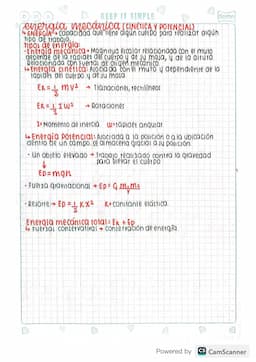 KEEP IT SIMPLE
energía mecánica (CINÉTICA Y POTENCIAL)
↳ ENERGÍA → capacidad que tiene algún cuerpo para realizar algún
tipo de trabajo.
Tipos de energía:
• Energía mecánica → Magnitud escalar relacionada con el mvto
depende de la rapidez del cuerpo y de su masa, y de la altura
Relacionada con fuerzas de origen mecánico.
↳ Energía cinética: Asociada con el mvto y dependiente de la
rapidez del cuerpo y de su masa.
Ek = 1/2 mv² → Traslaciones, rectilíneos
Ek = 1/2 I w² → Rotaciones
I = Momento de inercia w = rapidez angular.
↳ Energía Potencial: Asociada a la posición o a la ubicación
dentro de un campo. Se almacena gracias a su posición.
• Un objeto elevado → Trabajo realizado contra la gravedad
para elevar el cuerpo
↓
Ep = mgh
• Fuerza gravitacional → Ep = G m₁m₂
• Resorte → Ep = 1/2 K x² K = constante elástica.
Energía mecánica total: Ek + Ep
↳ Fuerzas conservativas → conservación de energía.
Powered by CS CamScanner